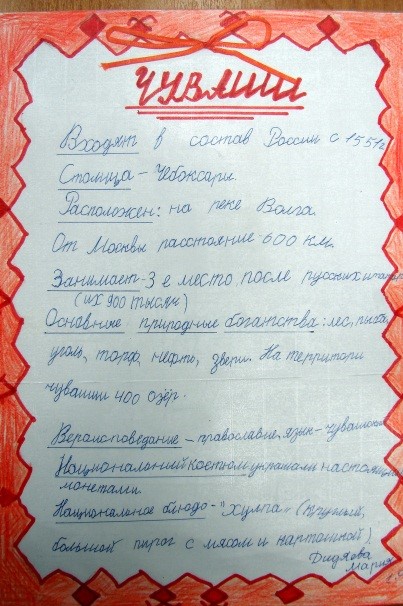 ЧУВАШИ
Входят в состав России с 1551г
Столица - Чебоксары.
Расположен: на реке Волга.
От Москвы расстояние 600 км.
Занимает - 3 е место после русских и татар
(их 900 тысяч)
Основные природные богатства: лес, рыба,
уголь, торф, нефть, звери. На территори
чувашии 400 озёр.
Вероисповедание - православие, язык - чувашский
Национальний костюм украшали настоящими
монетами.
Национальное блюдо - "Хулпа" (круглый,
большой пирог с мясом и картошкой).
Мария